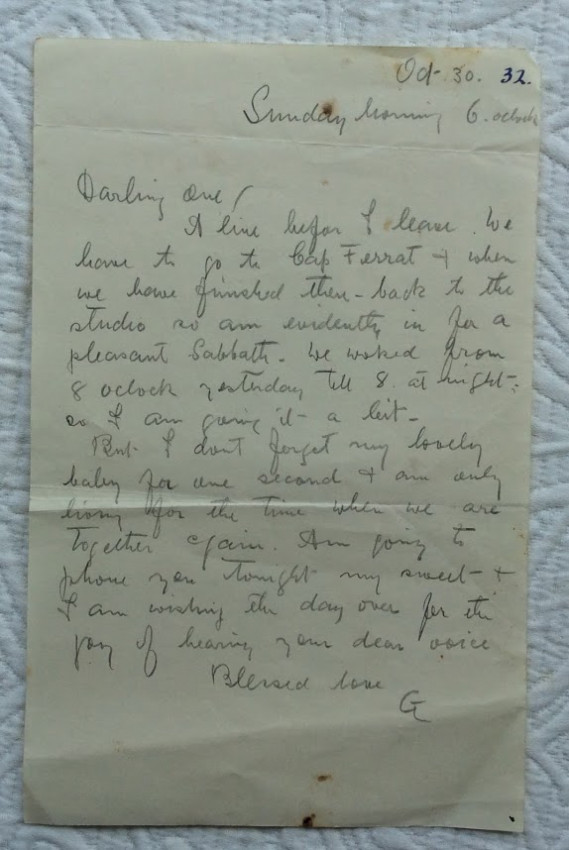 Oct 30. 32.
Sunday Morning 6. oclock
Darling One /
A line befor I leave. We
have to go to Cap Ferrat + when
we have finished then - back to the
studio so am evidently in for a
pleasant Sabbath. We woked from
8 oclock yesterday till 8. at night:
so I am going it a bit -
But I dont forget my lovely
baby for one second + am only
living for the time when we are
together again. Am going to
phone you tonight my sweet +
I am wishing the day over for the
joy of hearing your dear voice
Blessed love
G